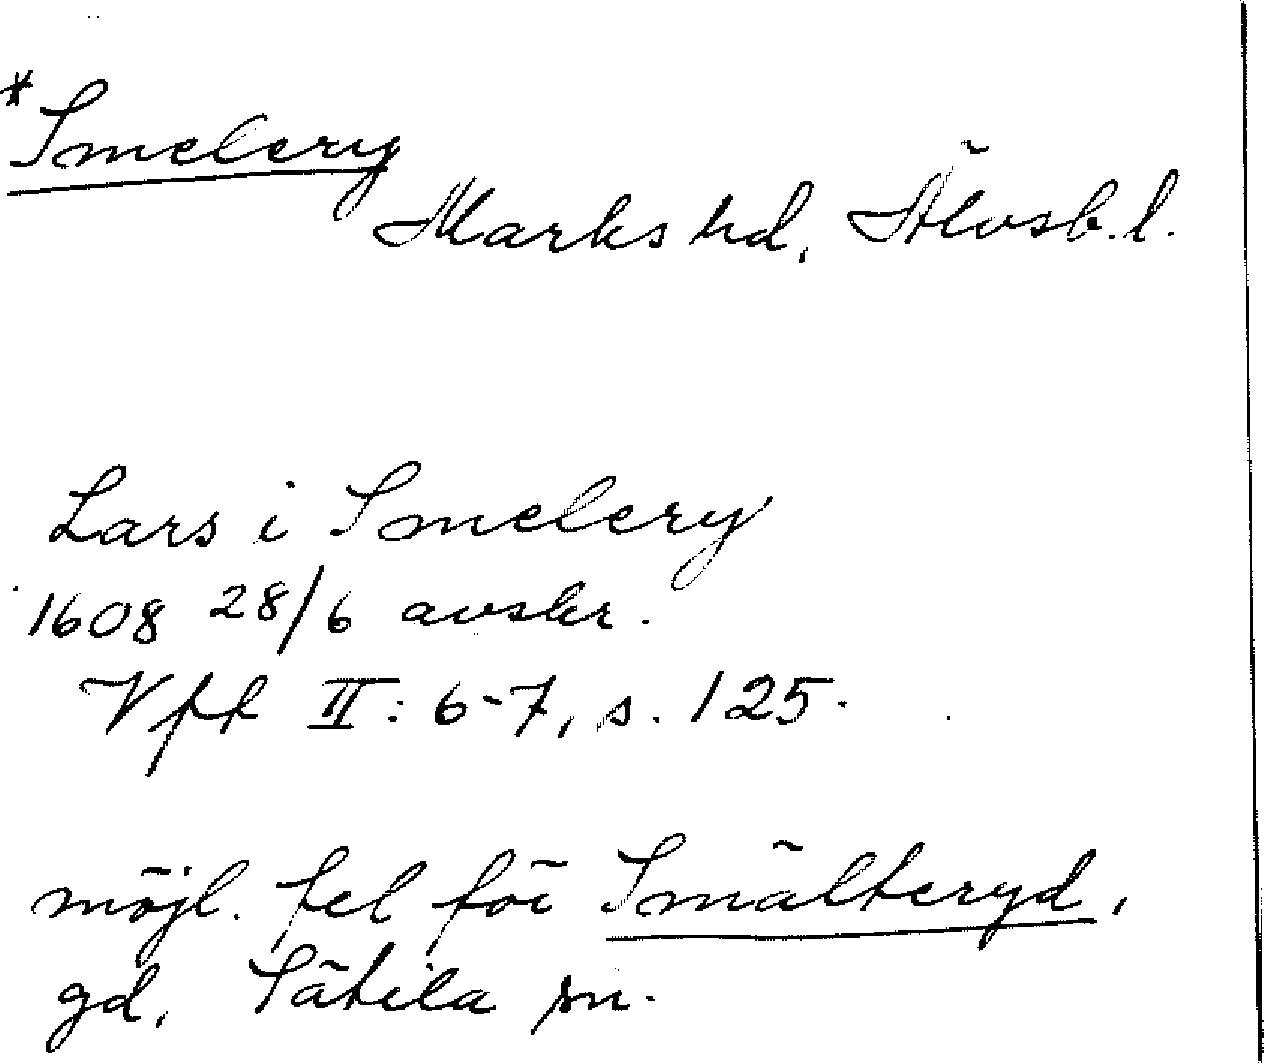 *Smelery
Marks hd, Älvsb. l.
Lars i Smelery
1608 28/6 avskr.
Vft II: 6-7, s. 125.
möjl. fel för Smälteryd,
gd, Sätila sn.